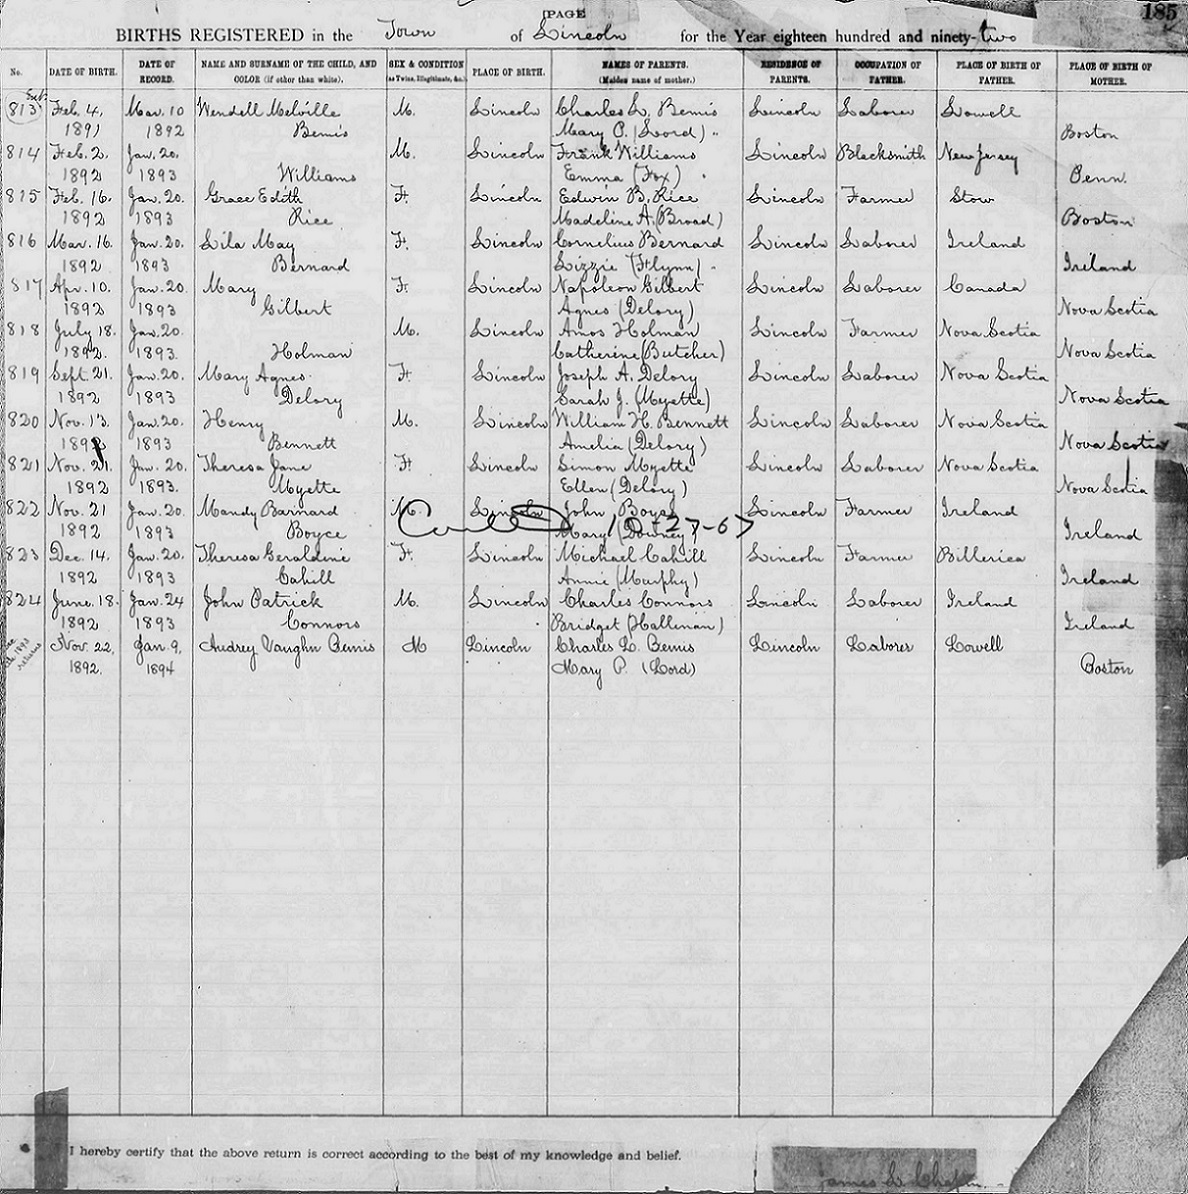 [PAGE 185
BIRTHS REGISTERED in the Town of Lincoln for the Year eighteen hundred and ninety-two
No. DATE OF BIRTH. DATE OF RECORD. NAME AND SURNAME OF THE CHILD, AND COLOR (if other than white). SEX & CONDITION (as Twins, Illegitimate, &c.) PLACE OF BIRTH. NAMES OF PARENTS. (Maiden name of mother.) RESIDENCE OF PARENTS. OCCUPATION OF FATHER. PLACE OF BIRTH OF FATHER. PLACE OF BIRTH OF MOTHER.
813 Feb. 4, Mar. 10 Wendell Melville M. Lincoln Charles L. Bemis Lincoln Laborer Lowell
1891 1892 Bemis Mary P. (Lord) Boston
814 Feb. 2. Jan. 20. M. Lincoln Frank Williams Lincoln Blacksmith New Jersey
1892 1893 Williams Emma (Fox) Penn.
815 Feb. 16. Jan. 20. Grace Edith F. Lincoln Edwin B. Rice Lincoln Farmer Stow
1892 1893 Rice Madeline A. (Broad) Boston
816 Mar. 16. Jan. 20. Lila May F. Lincoln Cornelius Bernard Lincoln Laborer Ireland
1892 1893 Bernard Lizzie (Flynn) Ireland
817 Apr. 10. Jan. 20. Mary F. Lincoln Napoleon Gilbert Lincoln Laborer Canada
1892 1893 Gilbert Agnes (Delory) Nova Scotia
818 July 18. Jan. 20. M. Lincoln Amos Holman Lincoln Farmer Nova Scotia
1892. 1893. Holman Catherine (Butcher) Nova Scotia
819 Sept. 21. Jan. 20. Mary Agnes F. Lincoln Joseph A. Delory Lincoln Laborer Nova Scotia
1892 1893 Delory Sarah J. (Myette) Nova Scotia
820 Nov. 13. Jan. 20. Henry M. Lincoln William H. Bennett Lincoln Laborer Nova Scotia
1892 1893 Bennett Amelia (Delory) Nova Scotia
821 Nov. 21. Jan. 20. Theresa Jane F. Lincoln Simon Myette Lincoln Laborer Nova Scotia
1892 1893. Myette Ellen (Delory) Nova Scotia
822 Nov. 21 Jan. 20. Mandy Barnard M. Lincoln John Boyce Lincoln Farmer Ireland
10-27-67
1892 1893 Boyce Mary (Downey) Ireland
823 Dec. 14. Jan. 20. Theresa Geraldine F. Lincoln Michael Cahill Lincoln Farmer Billerica
1892 1893 Cahill Annie (Murphy) Ireland
824 June 18. Jan. 24 John Patrick M. Lincoln Charles Connors Lincoln Laborer Ireland
1892 1893 Connors Bridget (Hallenan) Ireland
Nov. 22, Jan. 9, Audrey Vaughn Bemis M Lincoln Charles L. Bemis Lincoln Laborer Lowell
1892. 1894 Mary P. (Lord) Boston
I hereby certify that the above return is correct according to the best of my knowledge and belief.
James L. Chapin